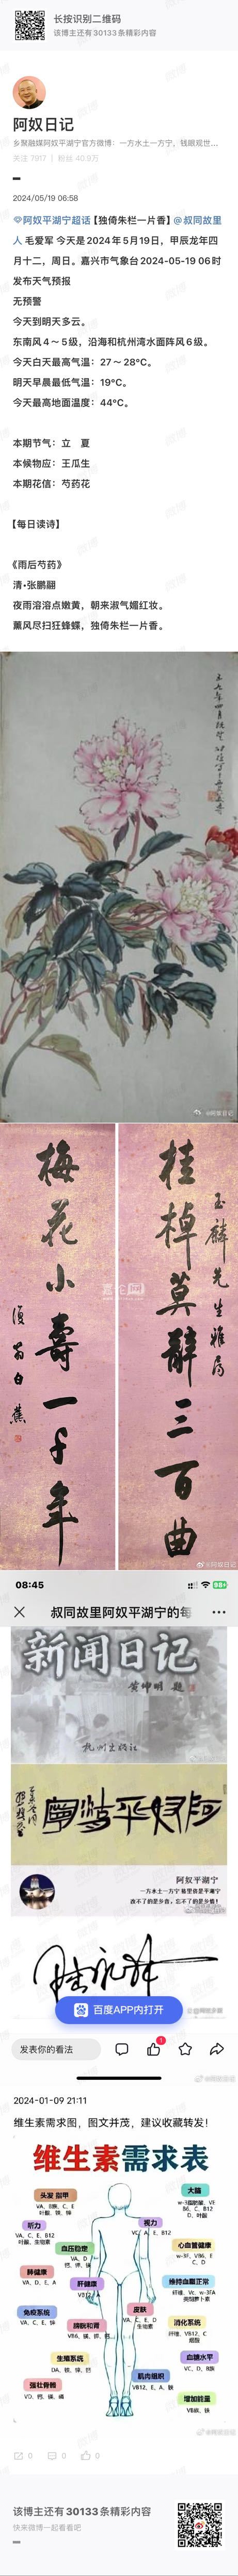 长按识别二维码
该博主还有30133条精彩内容
阿奴日记
乡聚融媒阿奴平湖宁官方微博：一方水土一方宁，钱眼观世...
关注 7917 | 粉丝 40.9万
2024/05/19 06:58
阿奴平湖宁超话【独倚朱栏一片香】@叔同故里
人 毛爱军 今天是2024年5月19日，甲辰龙年四
月十二，周日。嘉兴市气象台2024-05-19 06时
发布天气预报
无预警
今天到明天多云。
东南风4～5级，沿海和杭州湾水面阵风6级。
今天白天最高气温：27～28℃。
明天早晨最低气温：19℃。
今天最高地面温度：44℃。
本期节气：立 夏
本候物应：王瓜生
本期花信：芍药花
【每日读诗】
《雨后芍药》
清·张鹏翮
夜雨溶溶点嫩黄，朝来淑气媚红妆。
薰风尽扫狂蜂蝶，独倚朱栏一片香。
@阿奴日记
桂棹莫辞三百曲
玉麟先生雅属
梅花小寿一千年
复翁白蕉
@阿奴日记
08:45
叔同故里阿奴平湖宁的每
新闻日记
黄仲明 题
杭州出版社
阿奴平湖宁
阿奴平湖宁
一方水土一方宁 最里俟是平湖宁
改不了的是乡音，忘不了的是乡愁！
百度APP内打开
发表你的看法
1
2024-01-09 21:11
维生素需求图，图文并茂，建议收藏转发！
维生素需求表
头发 指甲
VA、B族、C、E
叶酸、铁、锌
大脑
w-3脂肪酸、VE
B6、C、B12
D、叶酸
听力
VA、C、E、B12
叶酸、生物素
视力
VC、A、E、B12
血压稳定
VA、D
钙、钾、镁
心血管健康
w-3F、VB6、E
C、D
肺健康
VA、D、E、A
肝健康
维持血糖正常
纤维、Vc、w-3FA
免疫系统
VA、C、E、锌
皮肤
VA、C、E、D
生物素
胰腺和肾
消化系统
纤维、VB12、C
生殖系统
血糖水平
VC、D、B族
强壮骨骼
VD、钙、镁、磷
肌肉组织
VB12、E、A、铁
增加能量
VB族、铁
0
0
0
该博主还有30133条精彩内容
快来微博一起看看吧